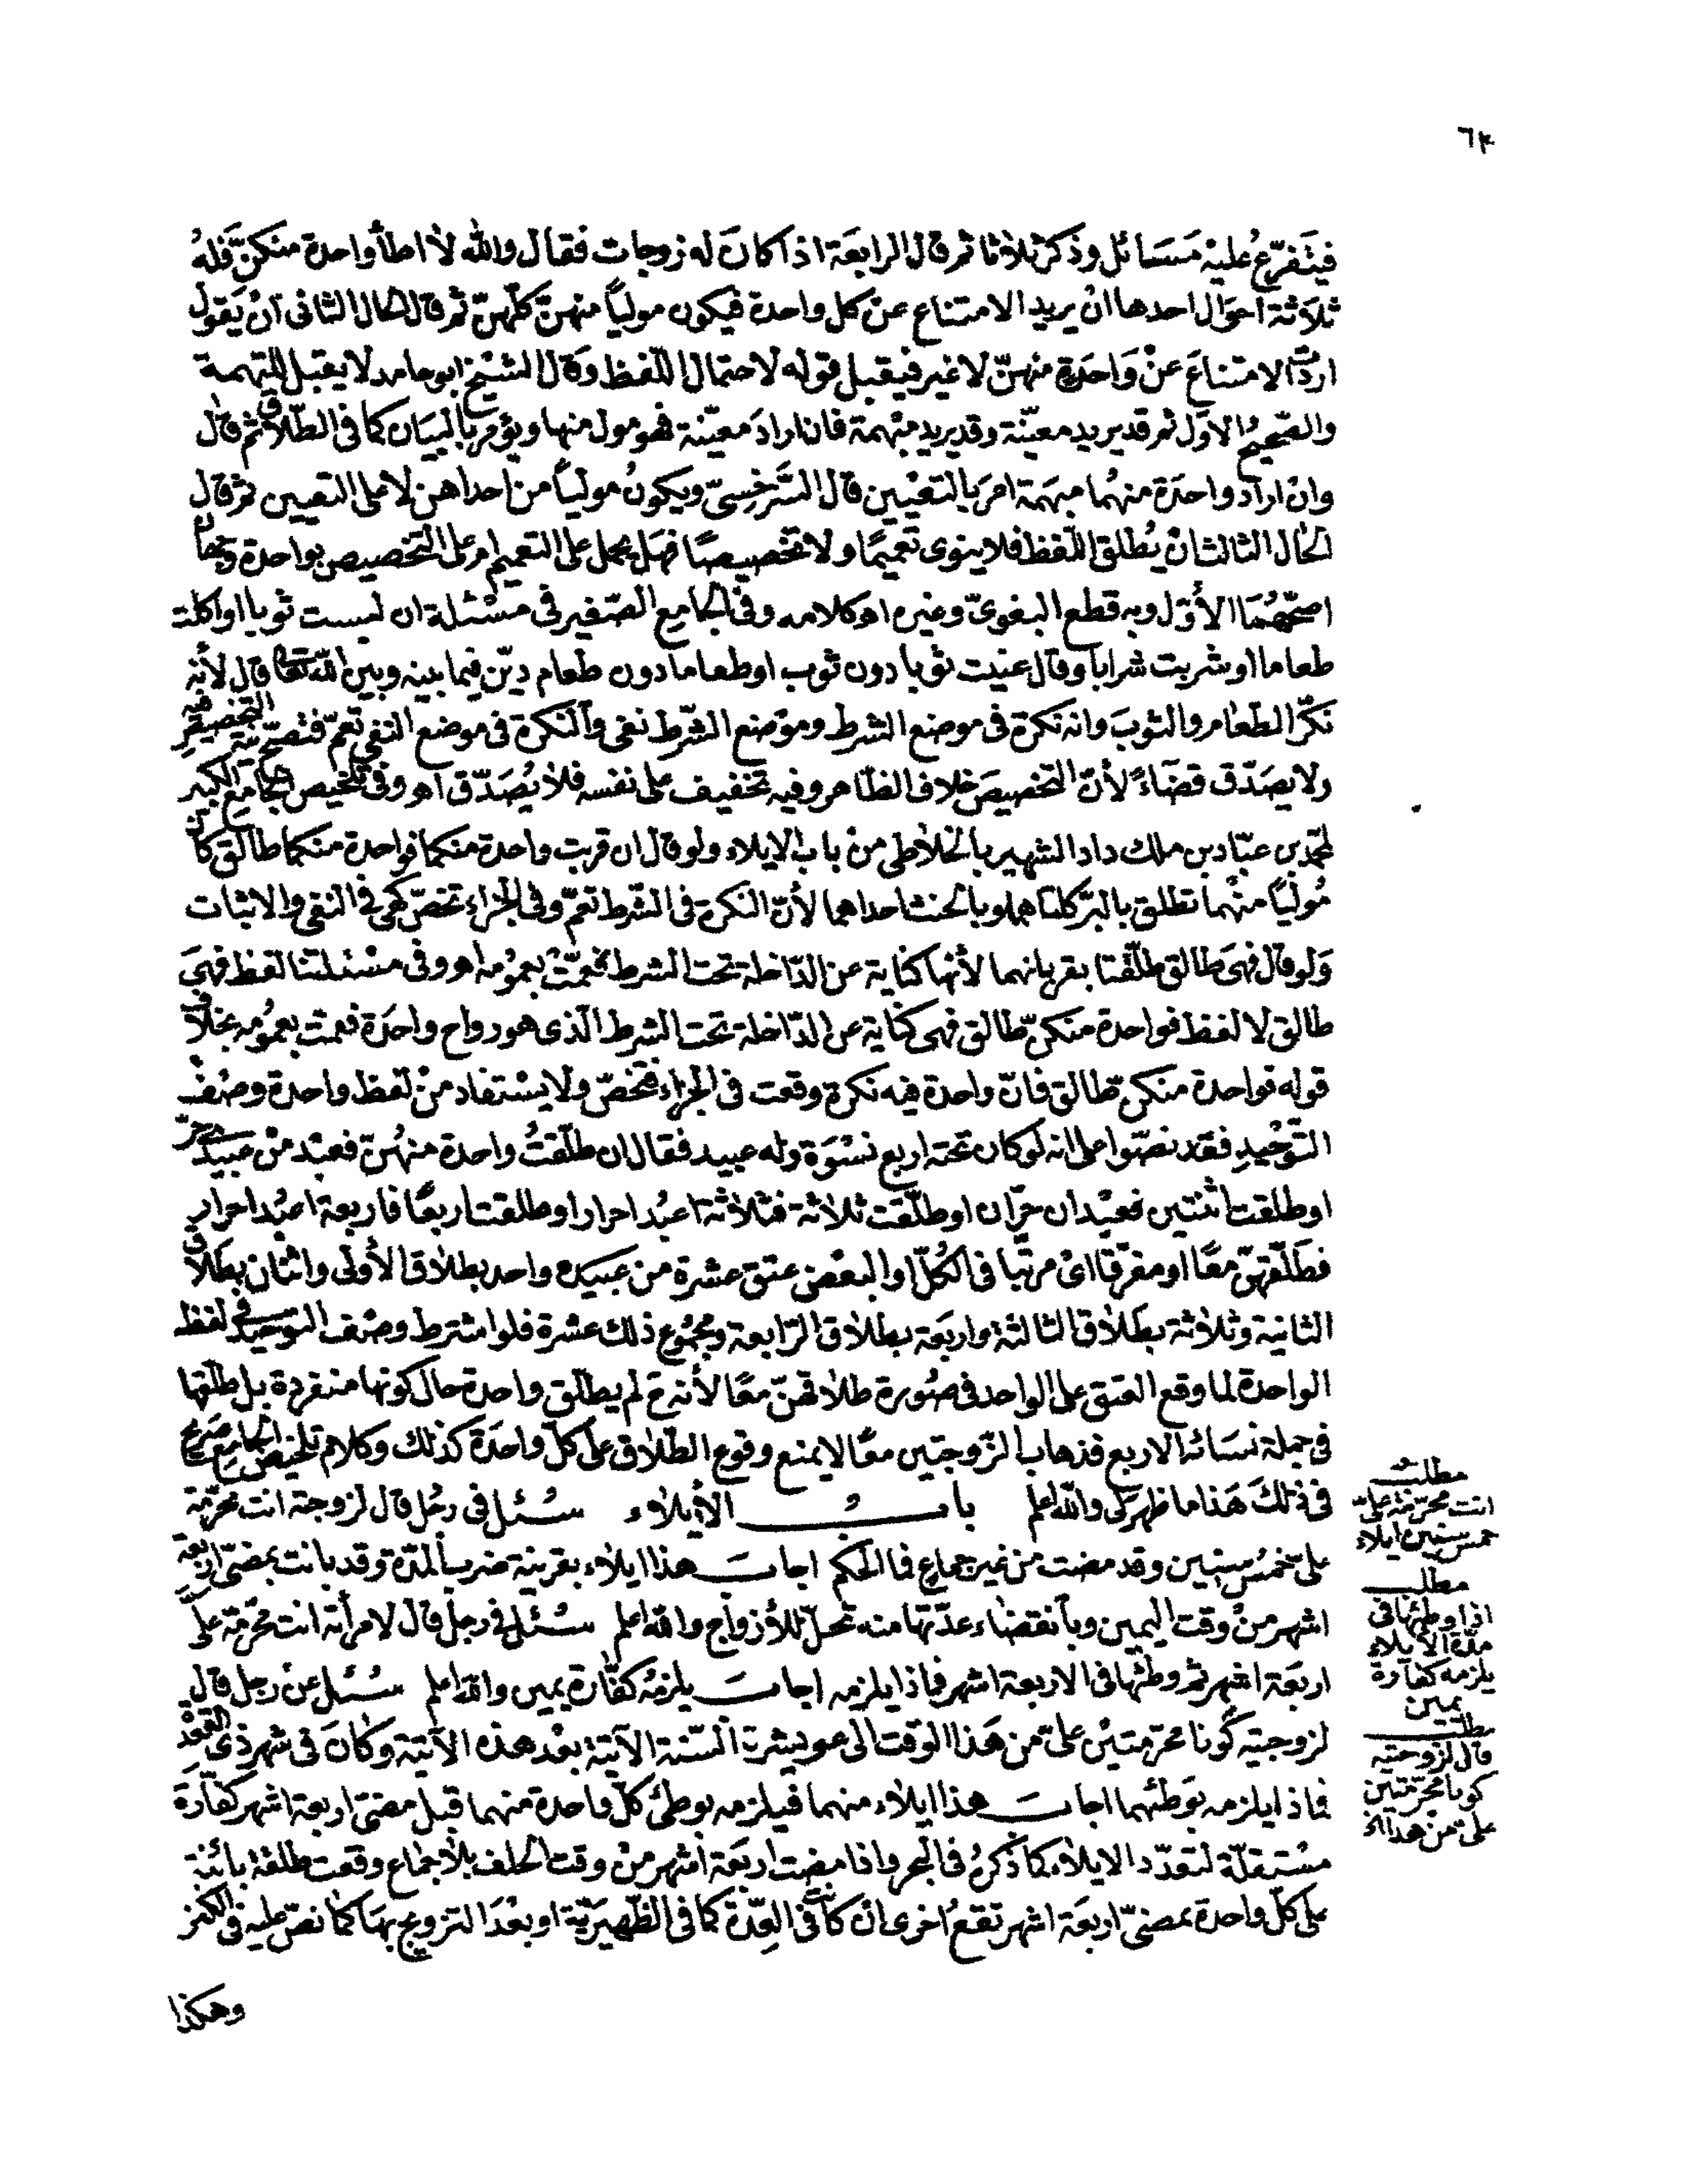 ٦٤
فيتفرّع عليه مَسَائل وذكر ثلاثا ثم قال الرابعَة اذا كانَ له زوجات فقال والله لا اطأ واحدة منكنّ فَلهُ
ثلاثة احوَال احدها ان يريد الامتناع عن كل واحدة فيكون موليًا منهنّ كلّهنّ ثم قال الحال الثانى انْ يَقول
اردتُ الامتناعَ عنْ وَاحدةٍ منهنّ لاغير فيقبل قوله لاحتمال اللّفظ وقال الشيخ ابو حامد لا يقبل للتهمة
والصّحيحُ الاوّل ثم قد يريد معيّنة وقد يريد مبهمة فان ارادَ معيّنة فهو مول منها ويؤمر بالبيَان كما فى الطّلاق ثم قال
وانْ ارادَ واحدَة منهُما مبهَمة امرَ بالتعْيين قال السَّرخسىّ ويكونُ موليًا من احداهن لا على التعيين ثم قال
الحَال الثالث انْ يُطلق اللّفظ فلا ينوى تَعميمًا ولا تخصيصًا فهل يحمل على التعميم ام على التخصيص بواحدة وجهان
اصحّهُمَا الأوّل وبه قطع البغوىّ وغيره اه كلامه وفى الجامع الصّغير فى مسْئلة ان لبست ثوبا او اكلت
طعاما او شربت شرابًا وقال عنيت ثوبا دون ثوب او طعاما دون طعام ديّن فيما بينه وبين الله تعالى قال لأنه
نكّر الطّعام والثوبَ وانه نكرة فى موضع الشرط وموْضع الشّرط نفى وَالنكرة فى موضع النفى تعمّ فتصحّ نية التخصيص فيه
ولا يصَدّق قضَاءً لأنّ التخصيصَ خلاف الظّاهر وفيه تخفيف على نفسه فلا يُصَدّق اه وفى تلخيص الجامع الكبير
لمحمّد بن عبّاد بن ملك داد الشهير بالخلاطى منْ باب الايلاء ولو قال ان قربت واحدة منكما فواحدة منكما طالق كانَ
مُوليًا منْهما تطلق بالبرّ كلتاهما وبالحنث احداهما لأنّ النكرة فى الشّرط تعمّ وفى الجزاء تخصّ كهى فى النفى والاثبات
وَلو قال فهىَ طالق طلّقتا بقربانهما لأنها كناية عن الدّاخلة تحت الشرط فعمّتْ بعمُومه اه وفى مسْئلتنا لفظ فهىَ
طالق لا لفظ فواحدة منكنّ طالق فهى كناية عن الدّاخلة تحت الشرط الّذى هو رواح واحدَة فعمت بعمُومه بخلاف
قوله فواحدة منكنّ طالق فانّ واحدة فيه نكرة وقعت فى الجزاء فتخصّ ولا يسْتفاد منْ لفظ واحدة وصْفُ
التّوْحيدِ فقَد نصّوا على انه لو كان تحته اربع نسْوَة وله عبيد فقال ان طلّقتُ واحدة منهُنّ فعبْد منْ عبيدى حرّ
او طلقت اثنتين فعبْدان حرّان او طلّقت ثلاثة فثلاثة اعبُد احرار او طلقت اربعًا فاربعة اعبُد احرار
فطَلّقهنّ معًا او مفرّقا اىْ مرتّبا فى الكُلّ او البعْض عتق عشرة من عبيده واحد بطلاق الأولى واثنان بطلاق
الثانية وثلاثة بطَلاق الثالثة واربَعة بطلاق الرّابعة ومجمُوع ذلك عشرة فلو اشترط وصْف التوحيد فى لفظ
الواحدة لما وقع العتق على الواحد فى صُورة طلاقهنّ معًا لأنه ح لم يطلّق واحدة حال كونها منفردة بل طلّقها
فى جملة نسَائه الاربع فذهاب الزّوجتين معًا لا يمنع وقوع الطّلاق على كلّ واحدَة كذلك وكلام تلخيص الجامع صَريح
فى ذلكَ هَذا ما ظهر لى والله اعلم بابُ الأيلاء سُئل فى رجُل قال لزوجته انت محرّمة
علىّ خمسُ سِنين وقد مضت من غير جماع فما الحكم اجابَ هذا ايلاء بقرينة ضرب المدّة وقد بانت بمضىّ اربعَة
اشهر منْ وقت اليمين وبانقضَاء عدّتها منه تحلّ للأزواج والله اعلم سُئل فى رجل قال لامرأته انت محَرّمة علىّ
اربَعة اشهر ثم وطئها فى الاربعة اشهر فماذا يلزمه اجابَ يلزمُه كفّارة يمين والله اعلم سُئل عنْ رجل قال
لزوجتيه كُونا محرّمتيْن علىّ من هَذا الوَقت الى عويشرة السّنة الآتية بعْد هذه الآتية وكانَ فى شهر ذى القعْدة
فماذا يلزمه بوَطئهما اجابَ هذا ايلاء منهما فيلزمه بوطئ كلّ واحدة منهما قبل مضىّ اربعة اشهر كفّارة
مسْتقلّة لتعدّد الايلاء كما ذكرهُ فى البحر واذا مضت اربَعة اشهر منْ وقت الحلف بلا جماع وقعت طلقة بائنة
على كلّ واحدة بمضىّ اربعَة اشهر تقعُ اخرى انْ كانت فى العِدّة كما فى الظّهيرَيّة او بعْدَ التزوج بهَا كما نصّ عليه فى الكنز
وهكذا
مطلبُ
انت محرّمة علىّ
خمس سنين ايلاء
مطلب
اذا وطئها فى
مدّة الايلاء
يلزمه كفارة
يمين
مطلب
قال لزوجتيه
كونا محرّمتين
علىّ من هذا الخ